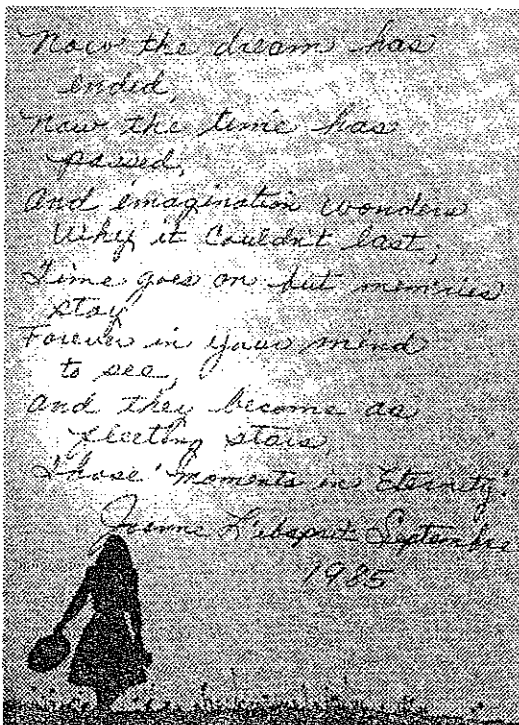 Now the dream has
ended,
Now the time has
passed,
And imagination wonders
Why it couldn't last;
Time goes on but mem'ries
stay
Forever in your mind
to see,
And they become as
fleeting stars,
Those 'moments in Eternity'.
Septembre
1985